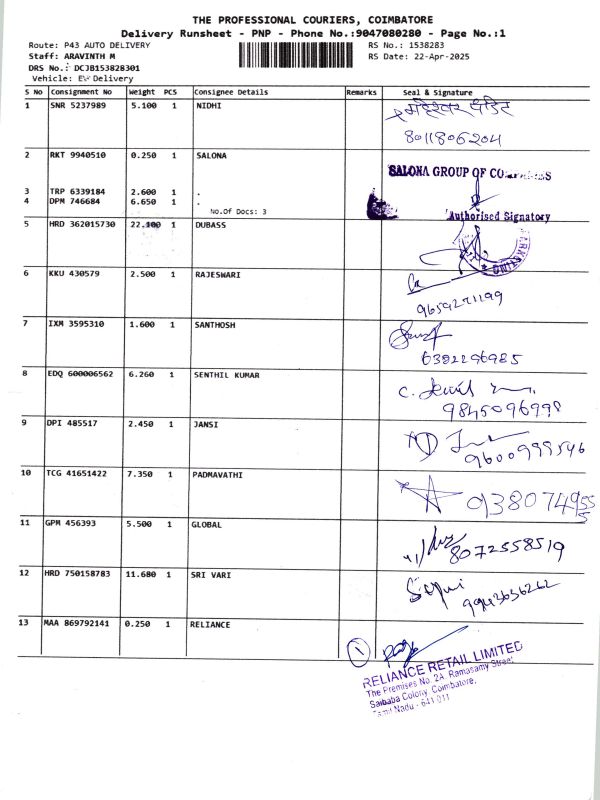 THE PROFESSIONAL COURIERS, COIMBATORE
Delivery Runsheet - PNP - Phone No.:9047080280 - Page No.:1
Route: P43 AUTO DELIVERY RS No.: 1538283
Staff: ARAVINTH M RS Date: 22-Apr-2025
DRS No.: DCJB153828301
Vehicle: EV Delivery
S No Consignment No Weight PCS Consignee Details Remarks Seal & Signature
1 SNR 5237989 5.100 1 NIDHI
8011806204
2 RKT 9940510 0.250 1 SALONA
SALONA GROUP OF
3 TRP 6339184 2.600 1 .
4 DPM 746684 6.650 1 .
No.Of Docs: 3
Authorised Signatory
5 HRD 362015730 22.100 1 DUBASS
6 KKU 430579 2.500 1 RAJESWARI
9659271199
7 IXM 3595310 1.600 1 SANTHOSH
6382296985
8 EDQ 600006562 6.260 1 SENTHIL KUMAR
C.
9845096998
9 DPI 485517 2.450 1 JANSI
9600999546
10 TCG 41651422 7.350 1 PADMAVATHI
9380749555
11 GPM 456393 5.500 1 GLOBAL
8072558519
12 HRD 750158783 11.680 1 SRI VARI
9943636262
13 MAA 869792141 0.250 1 RELIANCE
1
RELIANCE RETAIL LIMITED
The Premises No. 2A, Ramasamy Street
Saibaba Colony, Coimbatore,
Tamil Nadu - 641 011